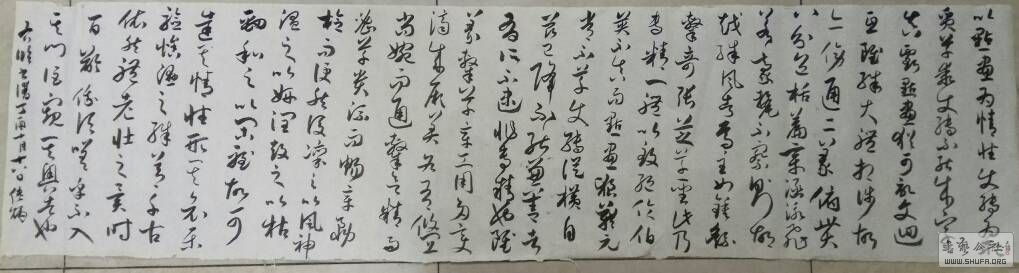 以點畫為情性使轉為形
質草乖使轉不能成字
真虧點畫猶可記文迴
互雖殊大體相涉故
亦傍通二篆俯貫
八分包括篇章涵泳飛
白若毫釐不察則胡
越殊風者焉至如鍾繇
隸奇張芝草聖此乃
專精一體以致絕倫伯
英不真而點畫狼藉元
常不草使轉縱橫自
茲已降不能兼善者
有所不逮非專精也雖
篆隸草章工用多變
濟成厥美各有攸宜篆
尚婉而通隸欲精而
密草貴流而暢章務
檢而便然後凜之以風神
溫之以妍潤鼓之以枯
勁和之以閑雅故可
達其情性形其哀樂
驗燥濕之殊節千古
依然體老壯之異時
百齡俄頃嗟乎不入
其門詎窺其奧者也
WWW.SHUFA.ORG